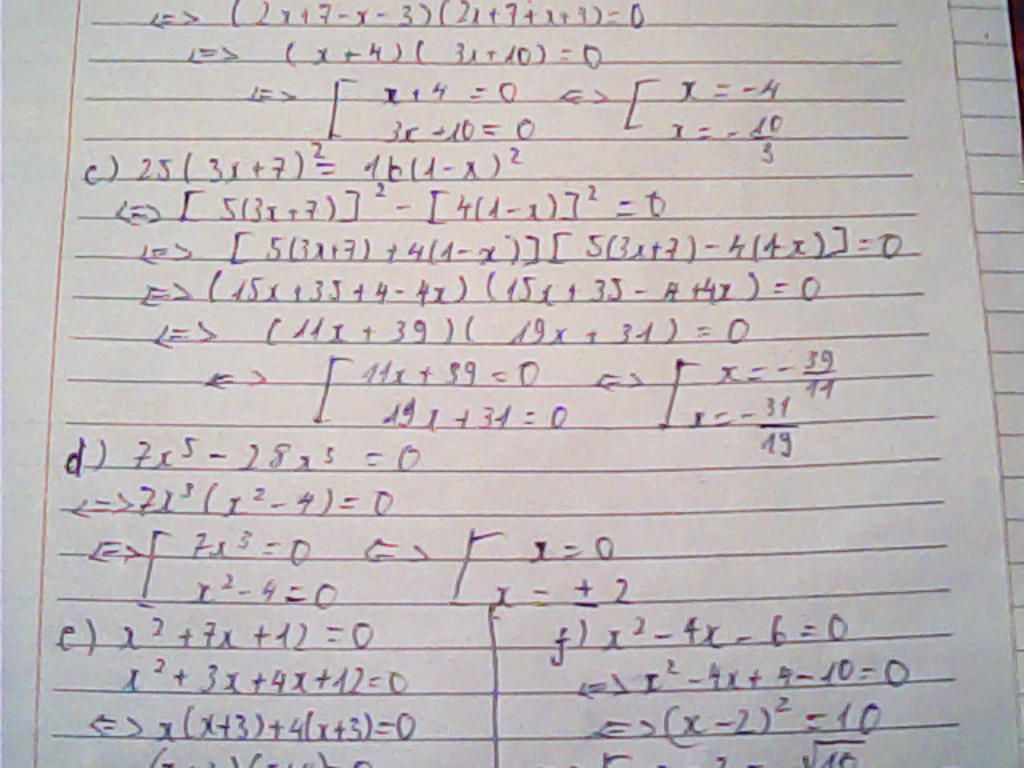 <=> (2x+7-x-3)(2x+7+x+3)=0
<=> (x+4)(3x+10)=0
<=> [ x+4=0 <=> [ x=-4
3x+10=0 x=-10/3
c) 25(3x+7)²=16(1-x)²
<=> [5(3x+7)]²-[4(1-x)]²=0
<=> [5(3x+7)+4(1-x)][5(3x+7)-4(1-x)]=0
<=> (15x+35+4-4x)(15x+35-4+4x)=0
<=> (11x+39)(19x+31)=0
<=> [ 11x+39=0 <=> [ x=-39/11
19x+31=0 x=-31/19
d) 7x⁵-28x³=0
<=> 7x³(x²-4)=0
<=> [ 7x³=0 <=> [ x=0
x²-4=0 x=±2
e) x²+7x+12=0
x²+3x+4x+12=0
<=> x(x+3)+4(x+3)=0
f) x²-4x-6=0
<=> x²-4x+4-10=0
<=> (x-2)²=10